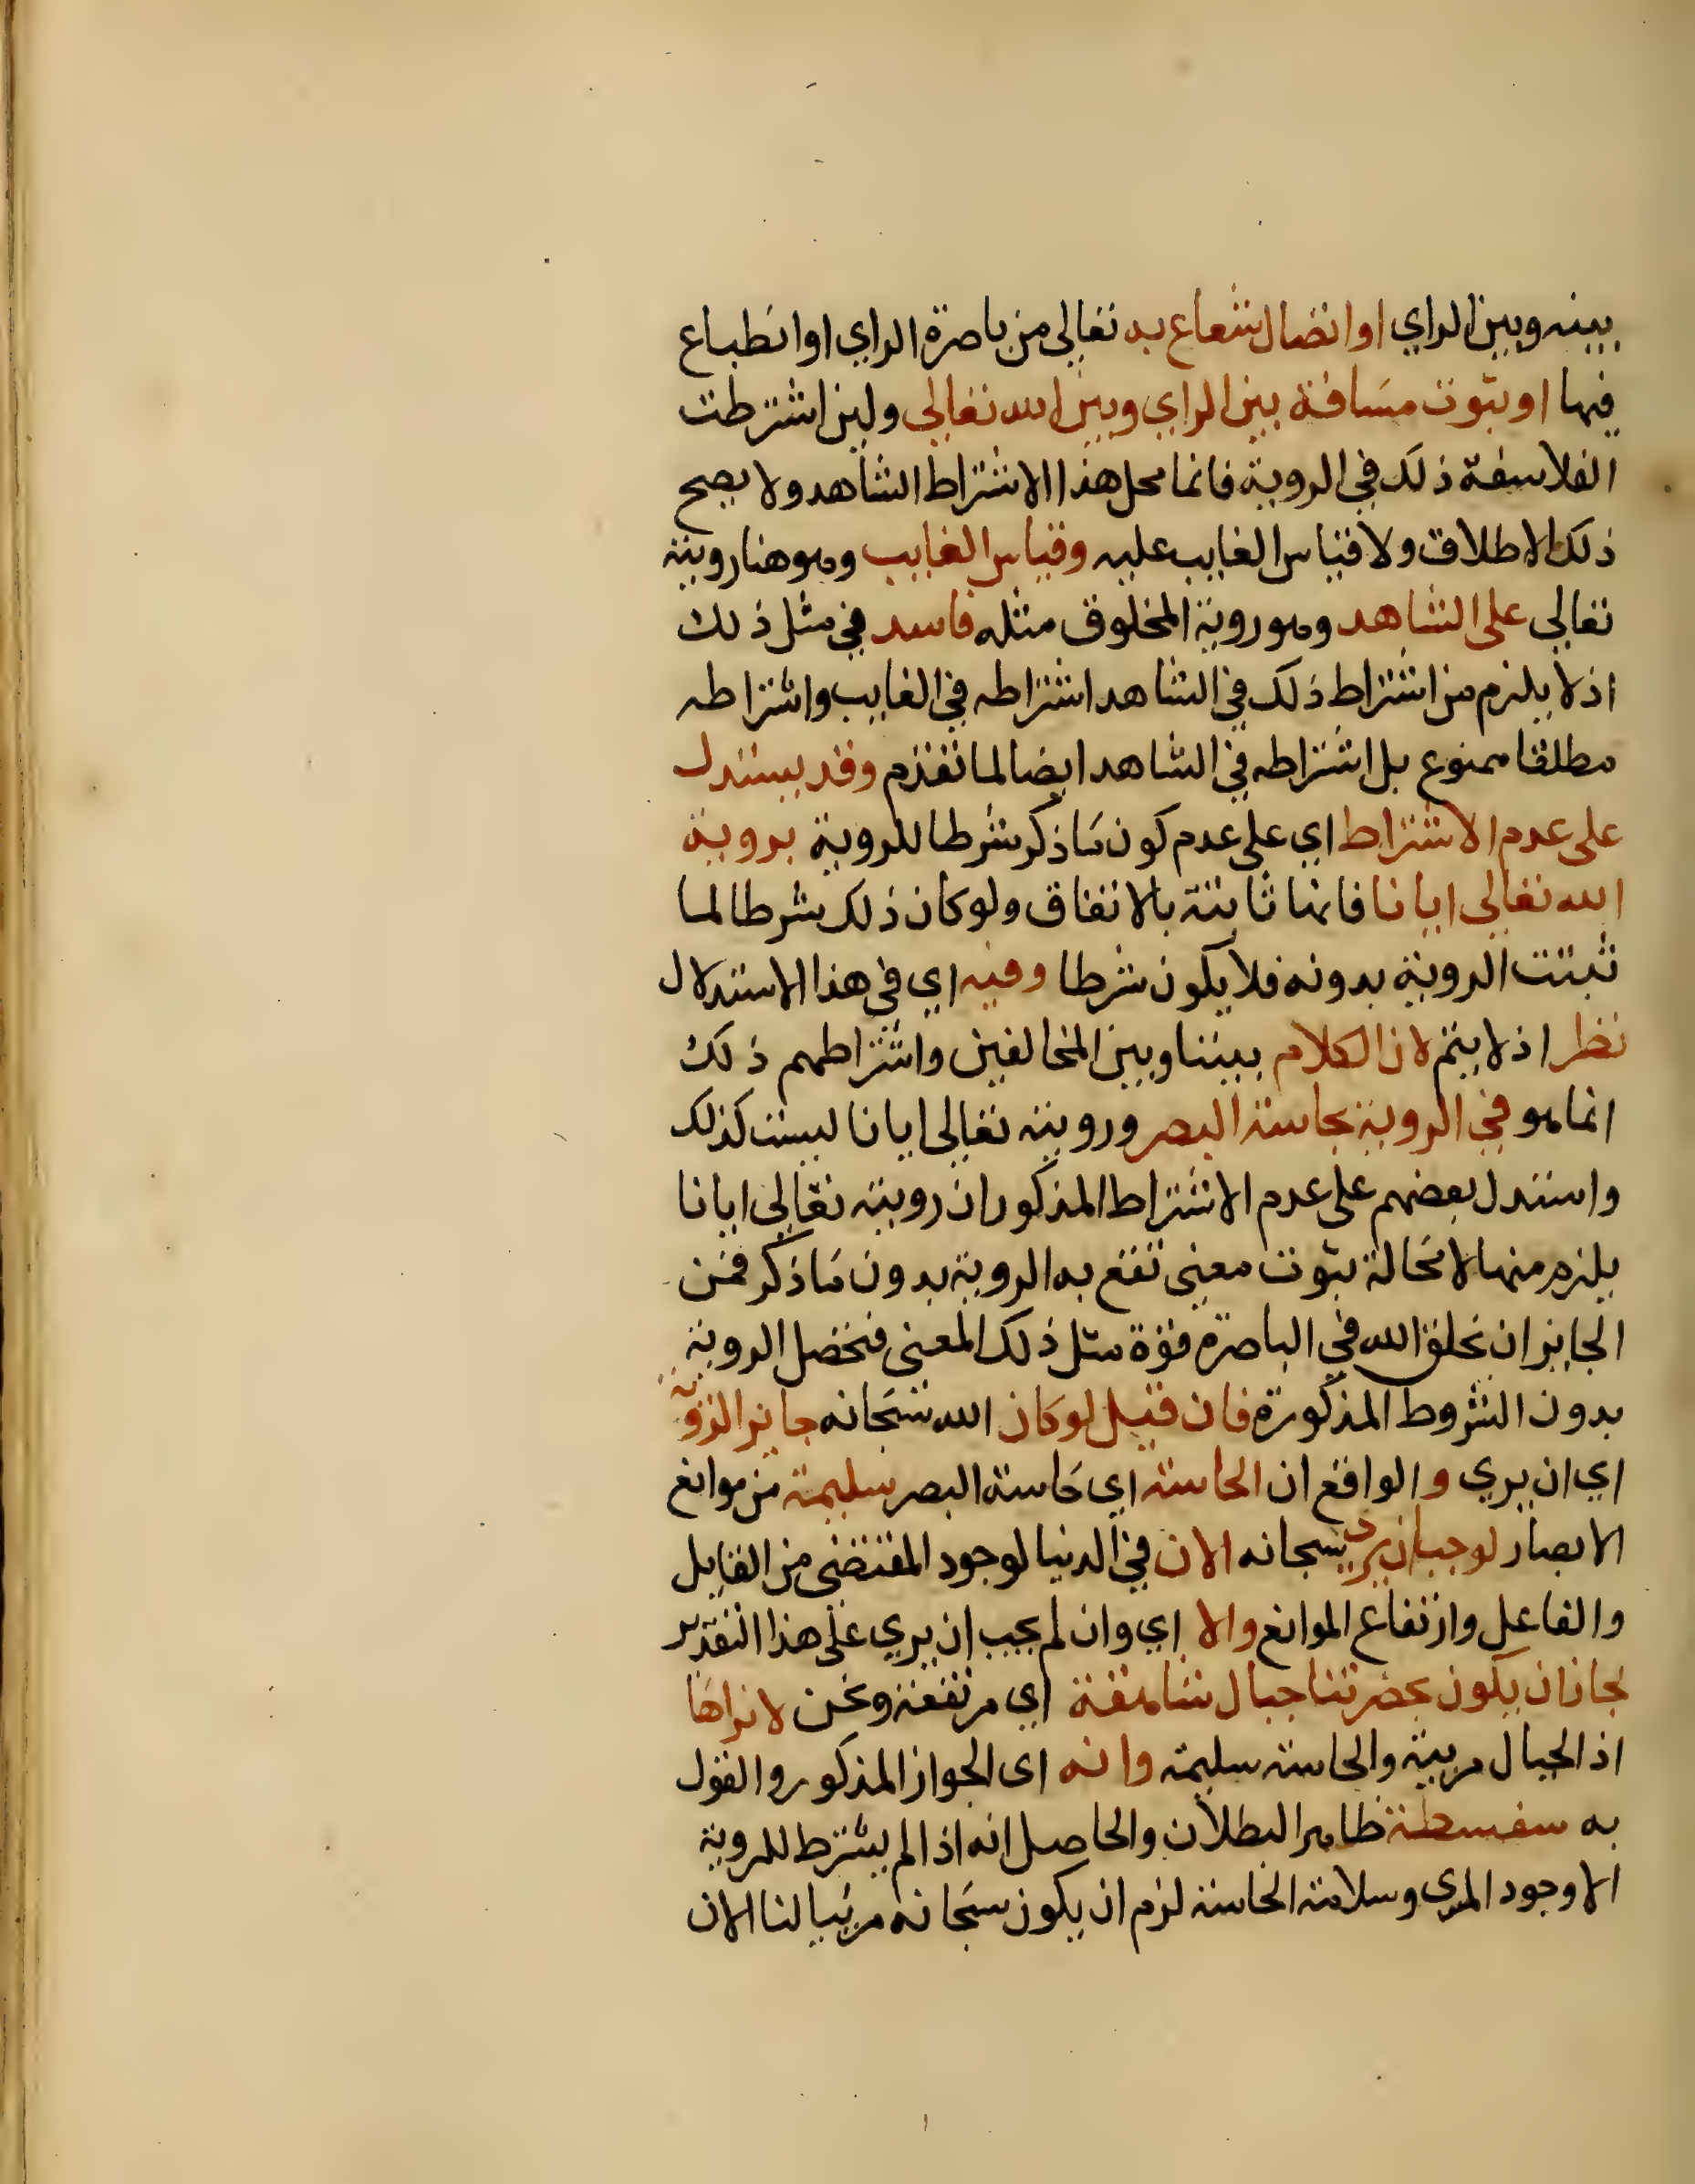 بينه وبين الراي او اتصال شعاع به تعالى من باصرة الراي او انطباع
فيها او ثبوت مسافة بين الراي وبين الله تعالى ولين اشترطت
الفلاسفة ذلك في الروية فانما محل هذا الاشتراط الشاهد ولا يصح
ذلك الاطلاق ولا قياس الغايب عليه وقياس الغايب وهو هنا رويته
تعالى على الشاهد وهو روية المخلوق مثله فاسد في مثل ذلك
اذ لا يلزم من اشتراط ذلك في الشاهد اشتراطه في الغايب واشتراطه
مطلقا ممنوع بل اشتراطه في الشاهد ايضا لما تقدم وقد يستدل
على عدم الاشتراط اي على عدم كون ما ذكر شرطا للروية بروية
الله تعالى ايانا فانها ثابتة بالاتفاق ولو كان ذلك شرطا لما
ثبتت الروية بدونه فلا يكون شرطا وفيه اي في هذا الاستدلال
نظر اذ لا يتم لان الكلام بيننا وبين المخالفين واشتراطهم ذلك
انما هو في الروية بحاسة البصر ورويته تعالى ايانا ليست كذلك
واستدل بعضهم على عدم الاشتراط المذكور ان رويته تعالى ايانا
يلزم منها لا محالة ثبوت معنى تقع به الروية بدون ما ذكر فمن
الجايز ان يخلق الله في الباصرة قوة مثل ذلك المعنى فتحصل الروية
بدون الشروط المذكورة فان قيل لو كان الله سبحانه جايز الروية
اي ان يري و الواقع ان الحاسة اي حاسة البصر سليمة من موانع
الابصار لوجب ان يرى سبحانه الان في الدنيا لوجود المقتضى من القابل
والفاعل وارتفاع الموانع والا اي وان لم يجب ان يري على هذا التقدير
لجاز ان يكون بحضرتنا جبال شاهقة اي مرتفعة ونحن لا نراها
اذ الجبال مريية والحاسة سليمة وانه اى الجواز المذكور والقول
به سفسطة ظاهر البطلان والحاصل انه اذا لم يشترط للروية
الا وجود المري وسلامة الحاسة لزم ان يكون سبحانه مرييا لنا الان